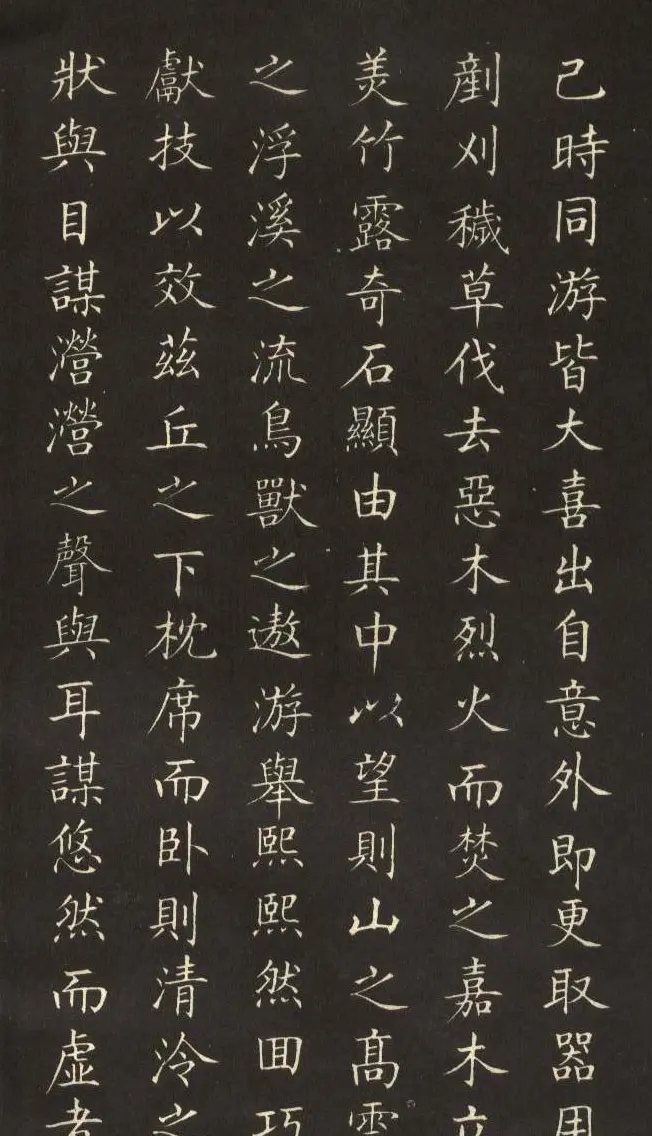 己時同游皆大喜出自意外即更取器用
剷刈穢草伐去惡木烈火而焚之嘉木立
美竹露奇石顯由其中以望則山之髙雲
之浮溪之流鳥獸之遨游舉熙熙然囬巧
獻技以效茲丘之下枕席而卧則清泠之
狀與目謀瀯瀯之聲與耳謀悠然而虚者